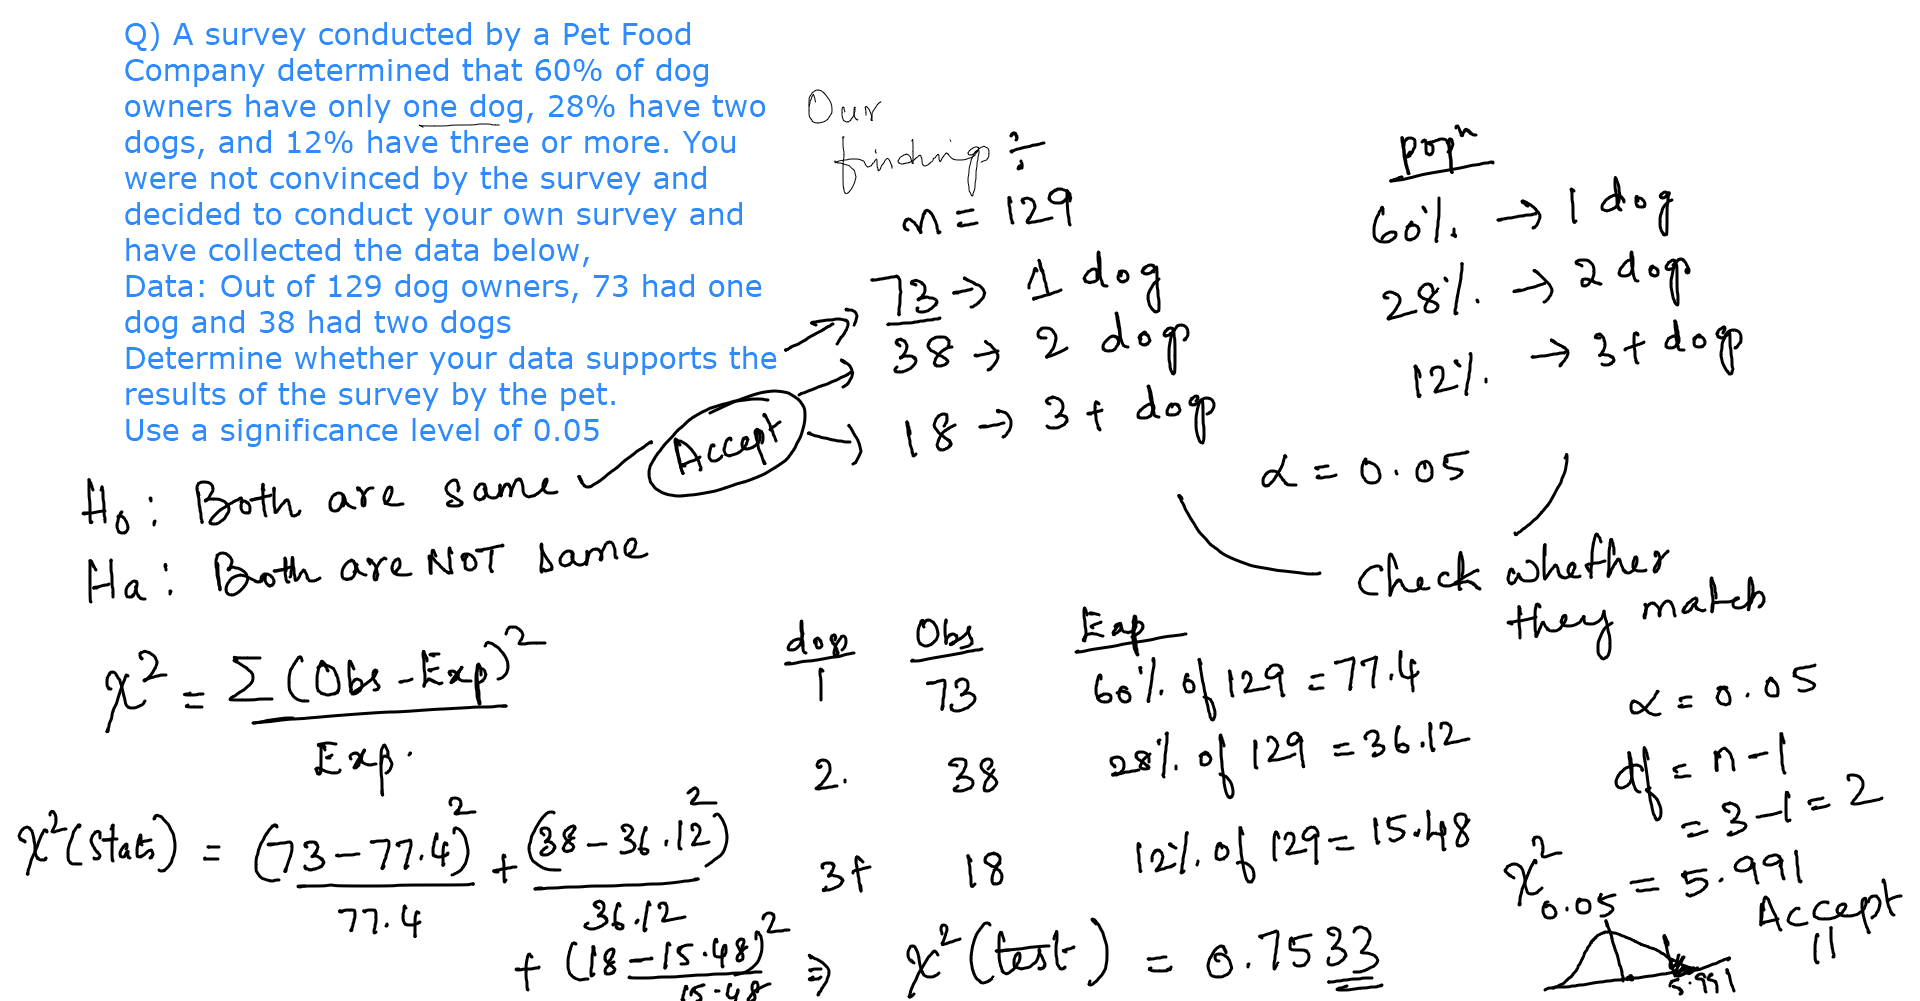 Q) A survey conducted by a Pet Food
Company determined that 60% of dog
owners have only one dog, 28% have two
dogs, and 12% have three or more. You
were not convinced by the survey and
decided to conduct your own survey and
have collected the data below,
Data: Out of 129 dog owners, 73 had one
dog and 38 had two dogs
Determine whether your data supports the
results of the survey by the pet.
Use a significance level of 0.05
Our
findings ÷
n = 129
73 → 1 dog
38 → 2 dogs
18 → 3+ dogs
popⁿ
60% → 1 dog
28% → 2 dogs
12% → 3+ dogs
Accept
α = 0.05
H₀: Both are same ✓
Ha: Both are NOT same
Check whether
they match
χ² = Σ(Obs - Exp)²
Exp.
dogs Obs Exp
1 73 60% of 129 = 77.4
2. 38 28% of 129 = 36.12
3+ 18 12% of 129 = 15.48
α = 0.05
df = n - 1
= 3 - 1 = 2
χ²0.05 = 5.991
Accept
5.991
χ²(stats) = (73 - 77.4)² + (38 - 36.12)²
77.4 36.12
+ (18 - 15.48)² ⇒ χ²(test) = 0.7533
15.48